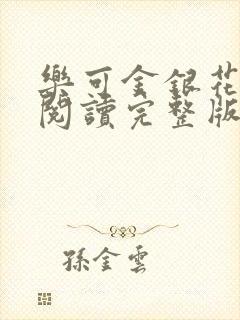 樂可金銀花
閱讀完整版
孫金雲